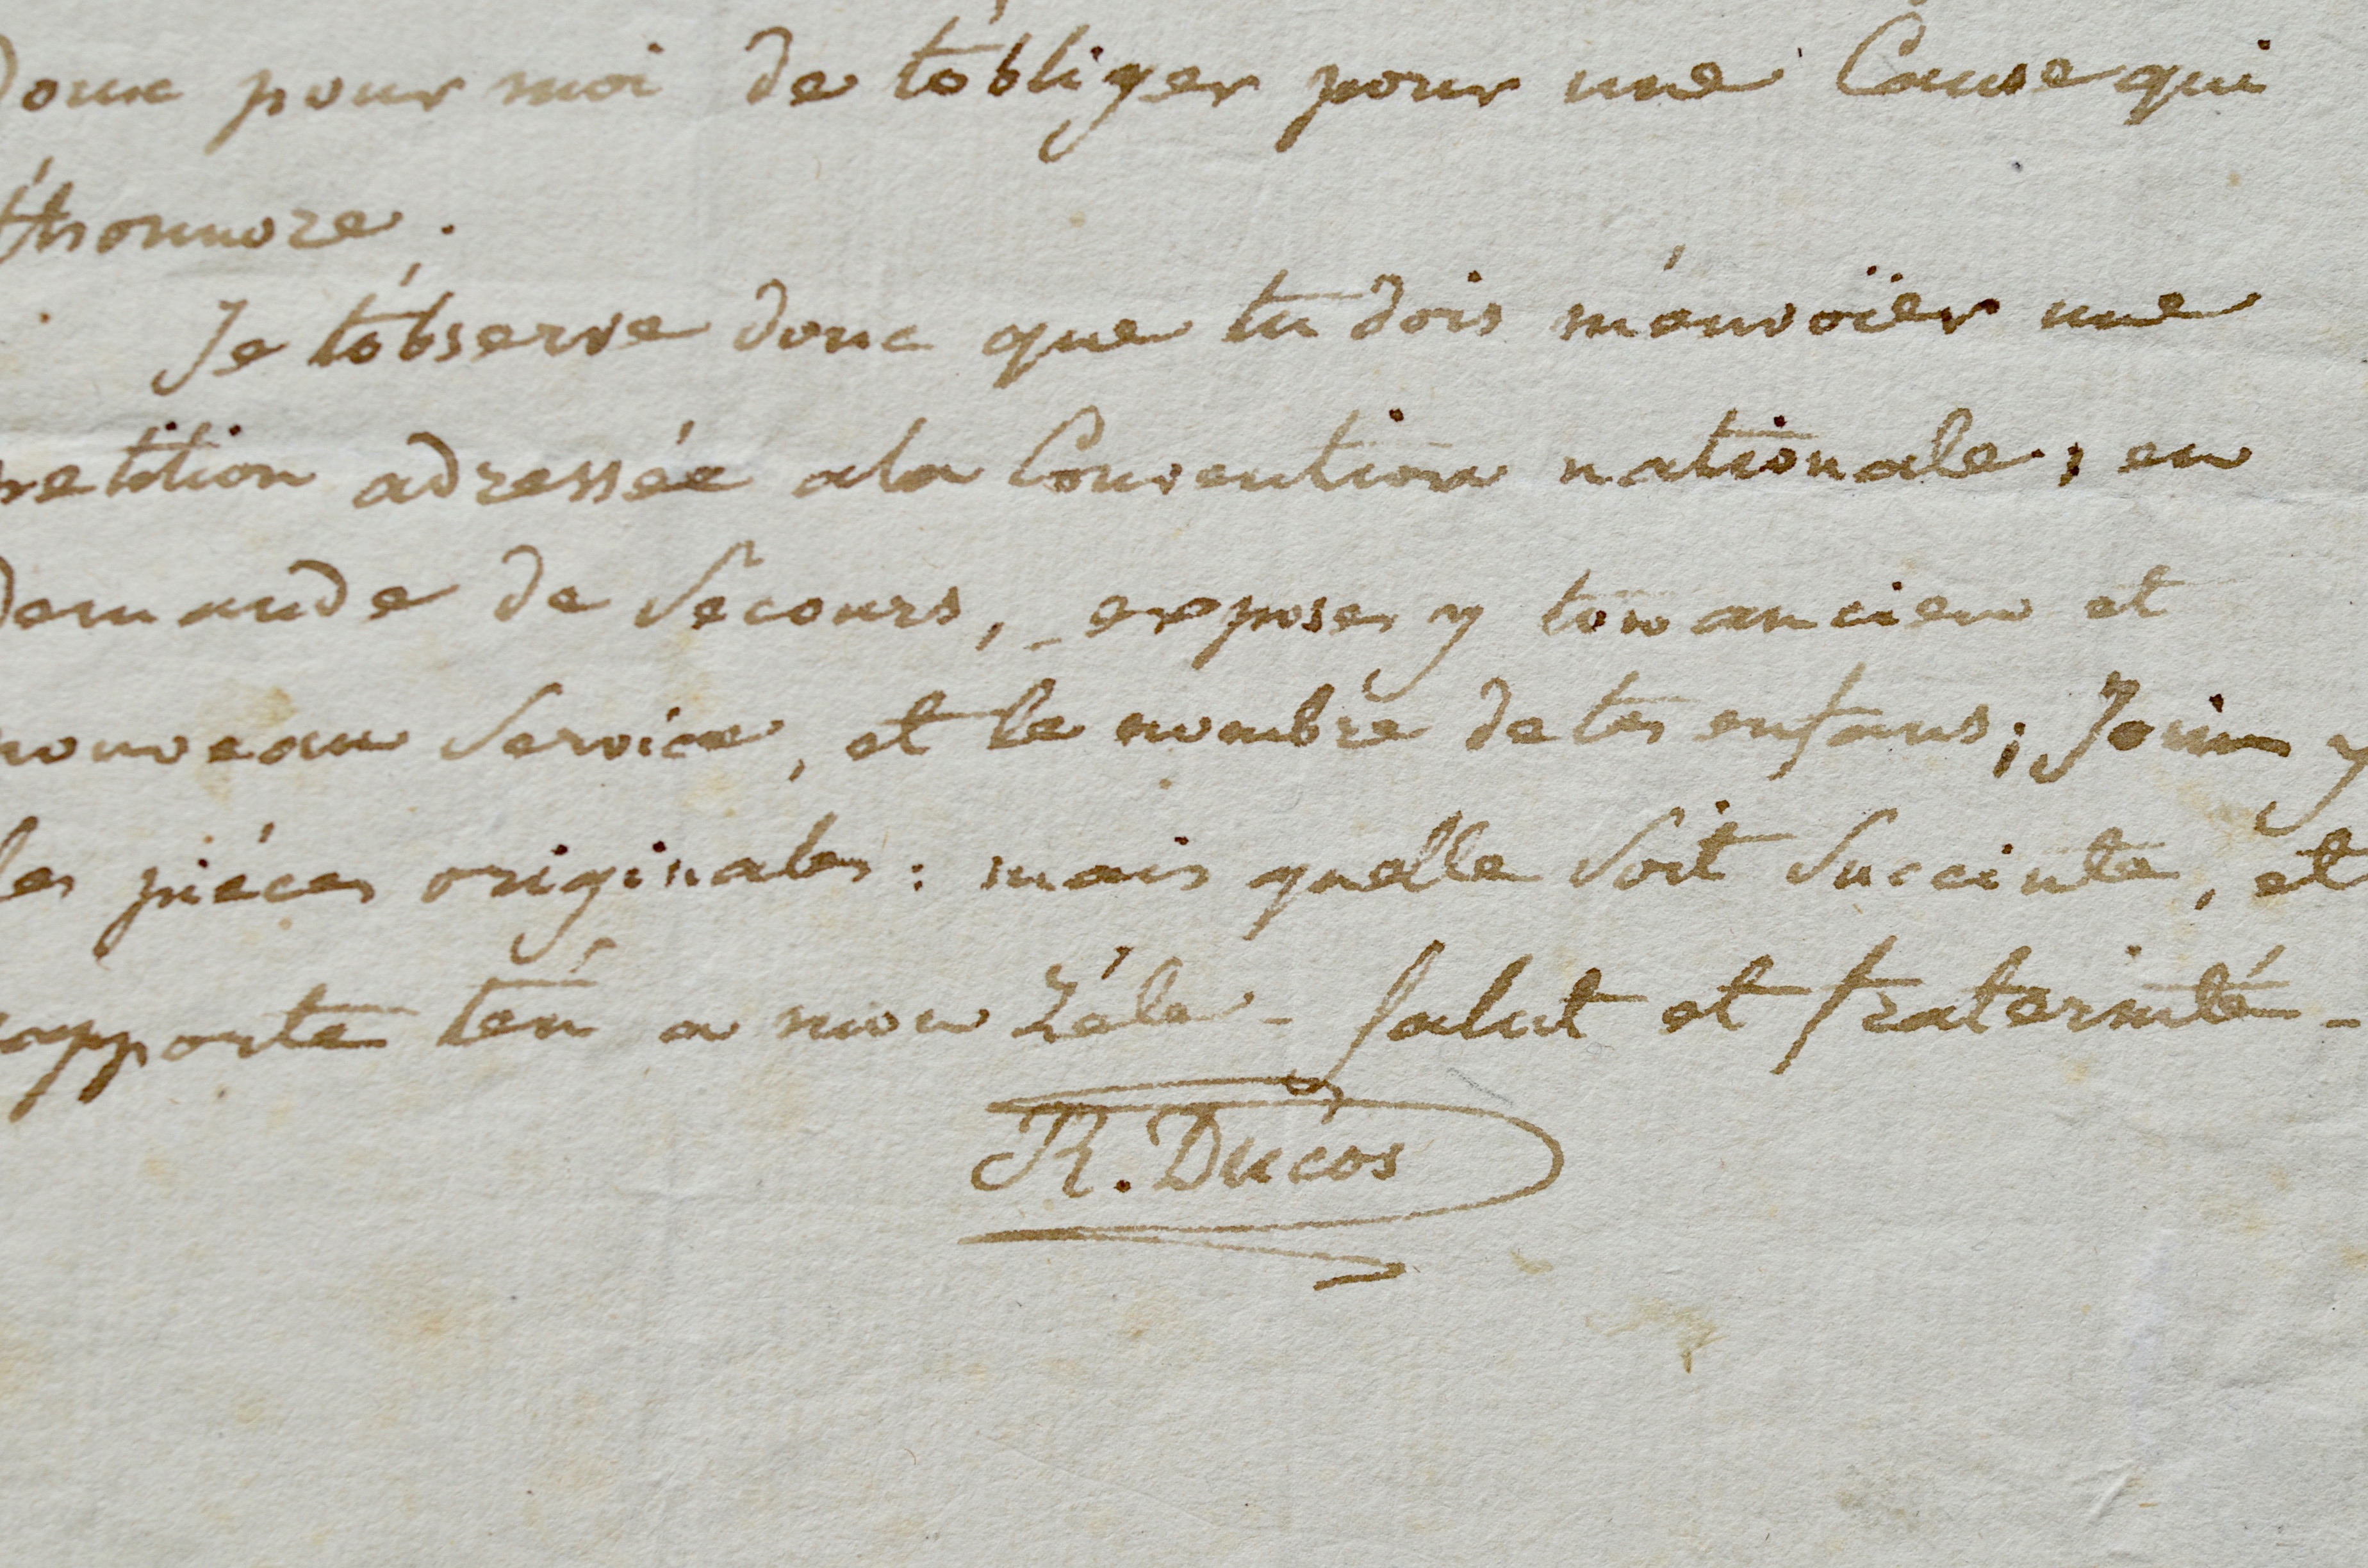 Doux pour moi de t'obliger pour une Cause qui
t'honnore.
Je t'observe donc que tu dois m'envoïer une
petition adressée ala Convention nationale; en
Demande de Secours, exposes y ton ancien et
nouveau Service, et le nombre de tes enfans; Join y
les piéces originales: mais qu'elle Soit Succinte, et
rapporte t'en a mon Zéle - Salut et fraternité -
R. Ducos